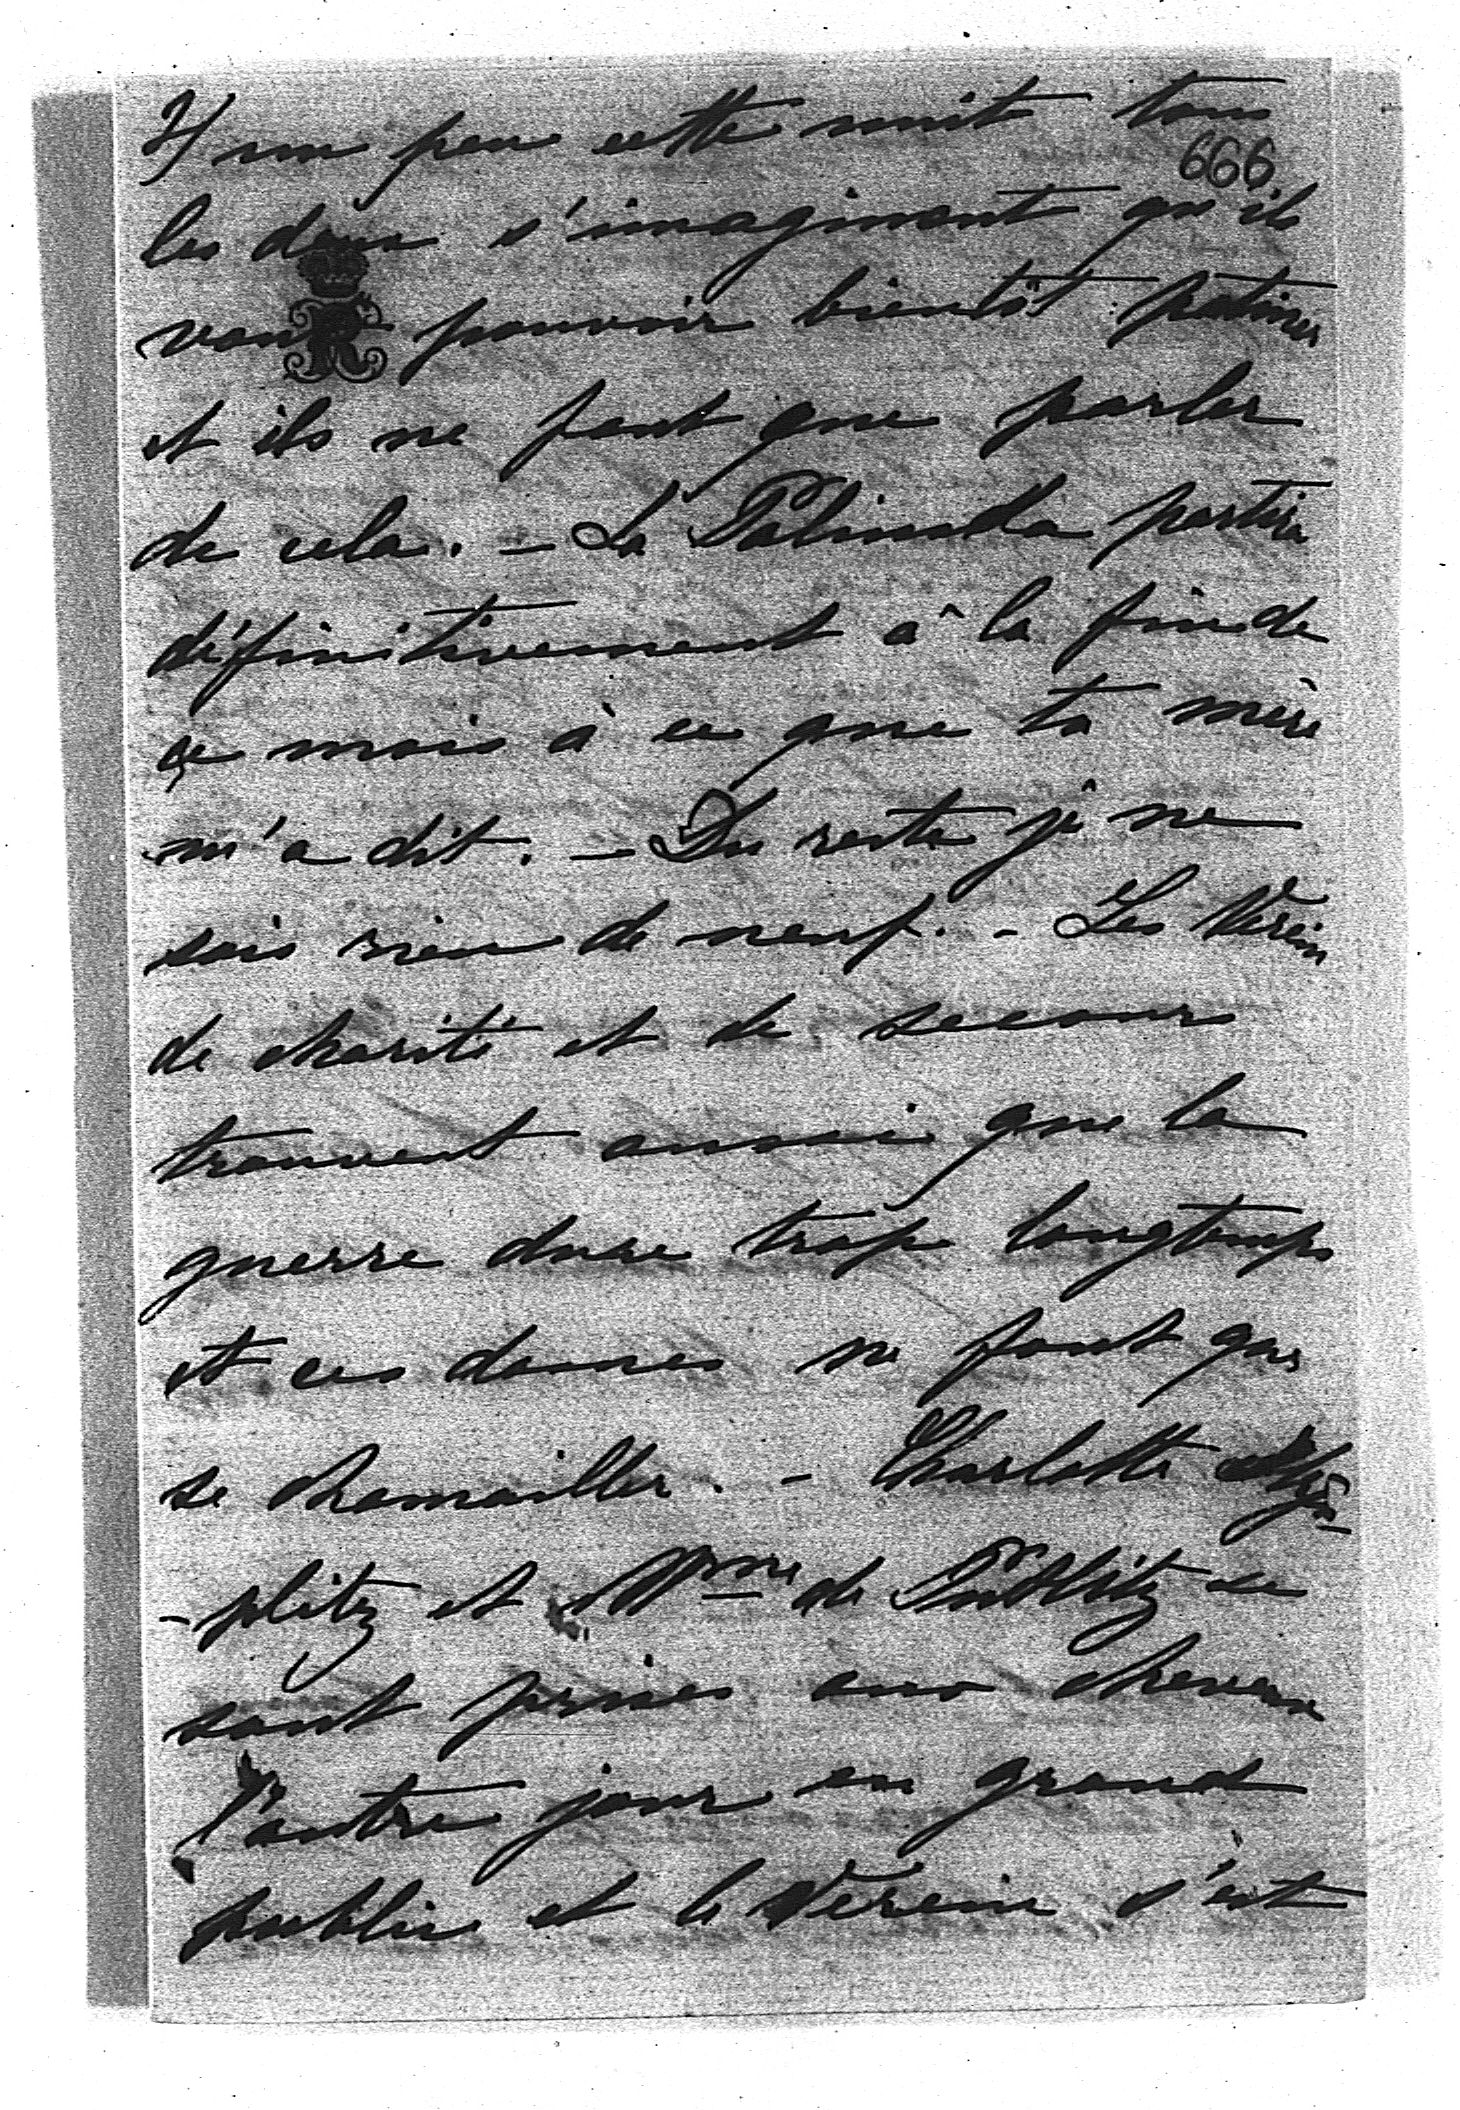 2/ un peu cette nuit tous
666.
les deux s'imaginant qu'ils
vont pouvoir bientôt patiner
et ils ne font que parler
de cela. – La Palinutta partira
définitivement à la fin de
ce mois à ce que ta mère
m'a dit. – Du reste je ne
sais rien de neuf. – Les Verein
de charité et de secours
trouvent aussi que la
guerre dure trop longtemps
et ces dames ne font que
se chamailler. – Charlotte
-plitz et Mme de Puttlitz se
sont prises aux cheveux
l'autre jour en grand
public et le Verein s'est